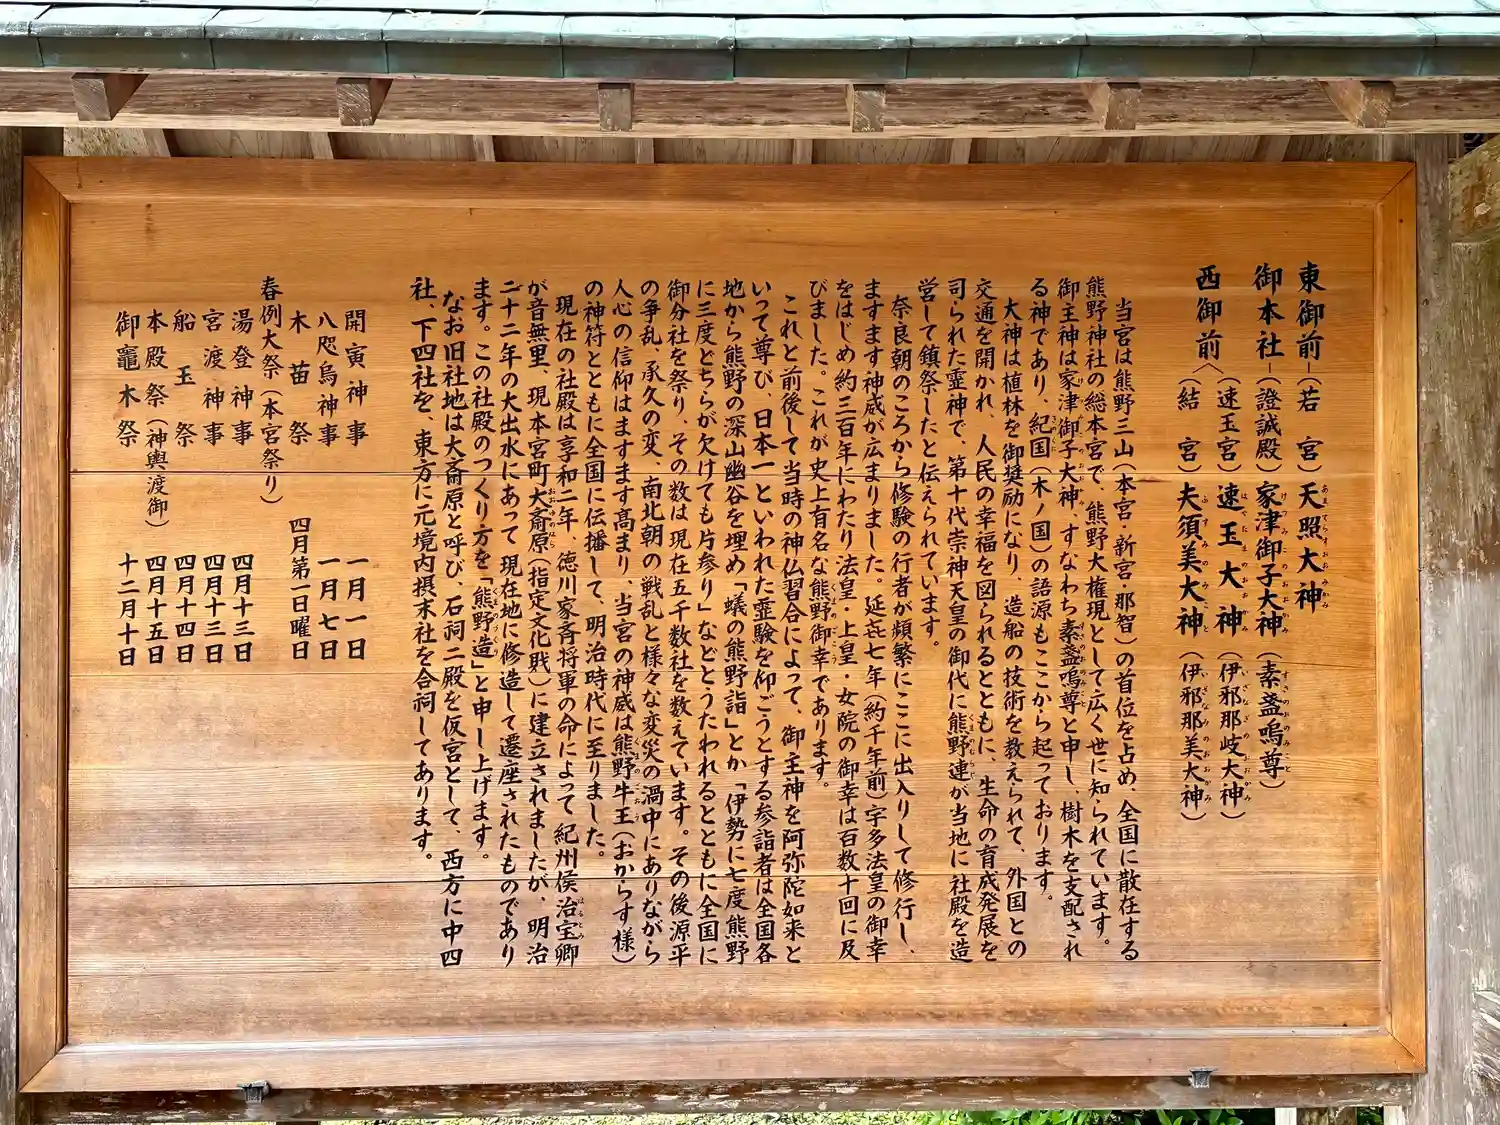 東御前―(若　宮)天照大神
御本社―(證誠殿)家津御子大神(素盞嗚尊)
西御前〈(速玉宮)速玉大神(伊邪那岐大神)
(結　宮)夫須美大神(伊邪那美大神)
当宮は熊野三山(本宮・新宮・那智)の首位を占め、全国に散在する
熊野神社の総本宮で、熊野大権現として広く世に知られています。
御主神は家津御子大神、すなわち素盞嗚尊と申し、樹木を支配され
る神であり、紀国(木ノ国)の語源もここから起っております。
大神は植林を御奨励になり、造船の技術を教えられて、外国との
交通を開かれ、人民の幸福を図られるとともに、生命の育成発展を
司られた霊神で、第十代崇神天皇の御代に熊野連が当地に社殿を造
営して鎮祭したと伝えられています。
奈良朝のころから修験の行者が頻繁にここに出入りして修行し、
ますます神威が広まりました。延㐂七年(約千年前)宇多法皇の御幸
をはじめ約三百年にわたり法皇・上皇・女院の御幸は百数十回に及
びました。これが史上有名な熊野御幸であります。
これと前後して当時の神仏習合によって、御主神を阿弥陀如来と
いって尊び、日本一といわれた霊験を仰ごうとする参詣者は全国各
地から熊野の深山幽谷を埋め「蟻の熊野詣」とか「伊勢に七度熊野
に三度どちらが欠けても片参り」などとうたわれるとともに全国に
御分社を祭り、その数は現在五千数社を数えています。その後源平
の争乱、承久の変、南北朝の戦乱と様々な変災の渦中にありながら
人心の信仰はますます高まり、当宮の神威は熊野牛王(おからす様)
の神符とともに全国に伝播して、明治時代に至りました。
現在の社殿は享和二年、徳川家斉将軍の命によって紀州侯治宝卿
が音無里、現本宮町大斎原(指定文化財)に建立されましたが、明治
二十二年の大出水にあって現在地に修造して遷座されたものであり
ます。この社殿のつくり方を「熊野造」と申し上げます。
なお旧社地は大斎原と呼び、石祠二殿を仮宮として、西方に中四
社、下四社を、東方に元境内摂末社を合祠してあります。
開寅神事　一月一日
八咫烏神事　一月七日
木苗祭　四月第一日曜日
春例大祭(本宮祭り)
湯登神事　四月十三日
宮渡神事　四月十三日
船玉祭　四月十四日
本殿祭(神輿渡御)　四月十五日
御竈木祭　十二月十日